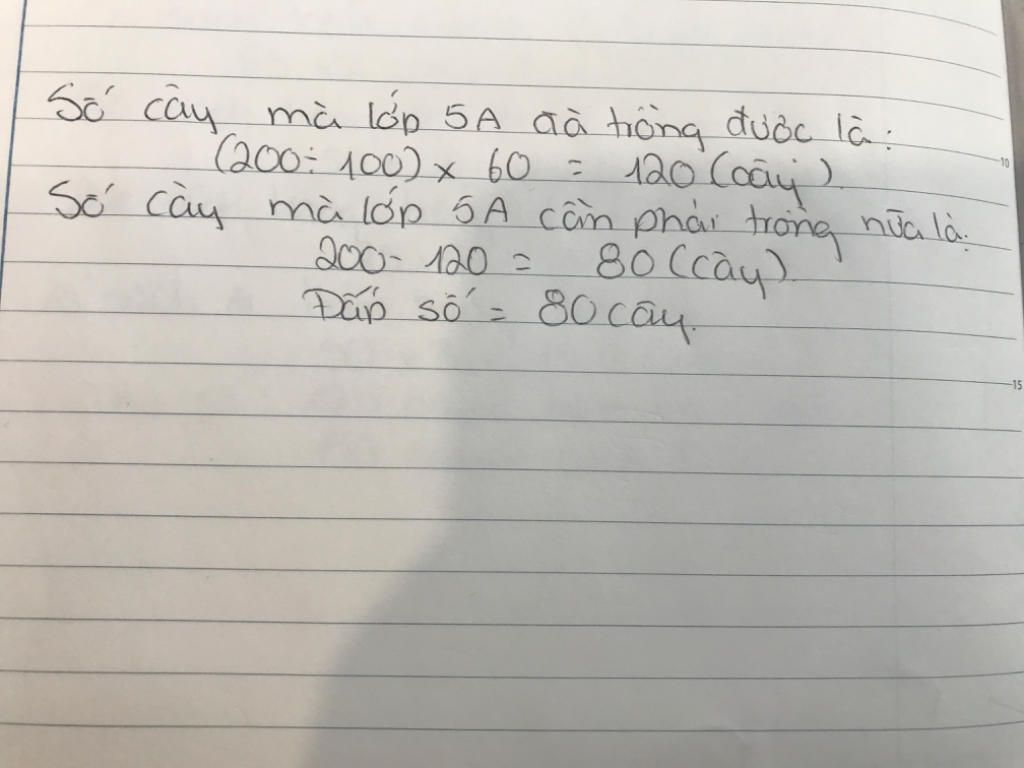 Số cây mà lớp 5A đã trồng được là:
(200 ÷ 100) x 60 = 120 (cây)
Số cây mà lớp 5A cần phải trồng nữa là:
200 - 120 = 80 (cây)
Đáp số = 80 cây.
10
15